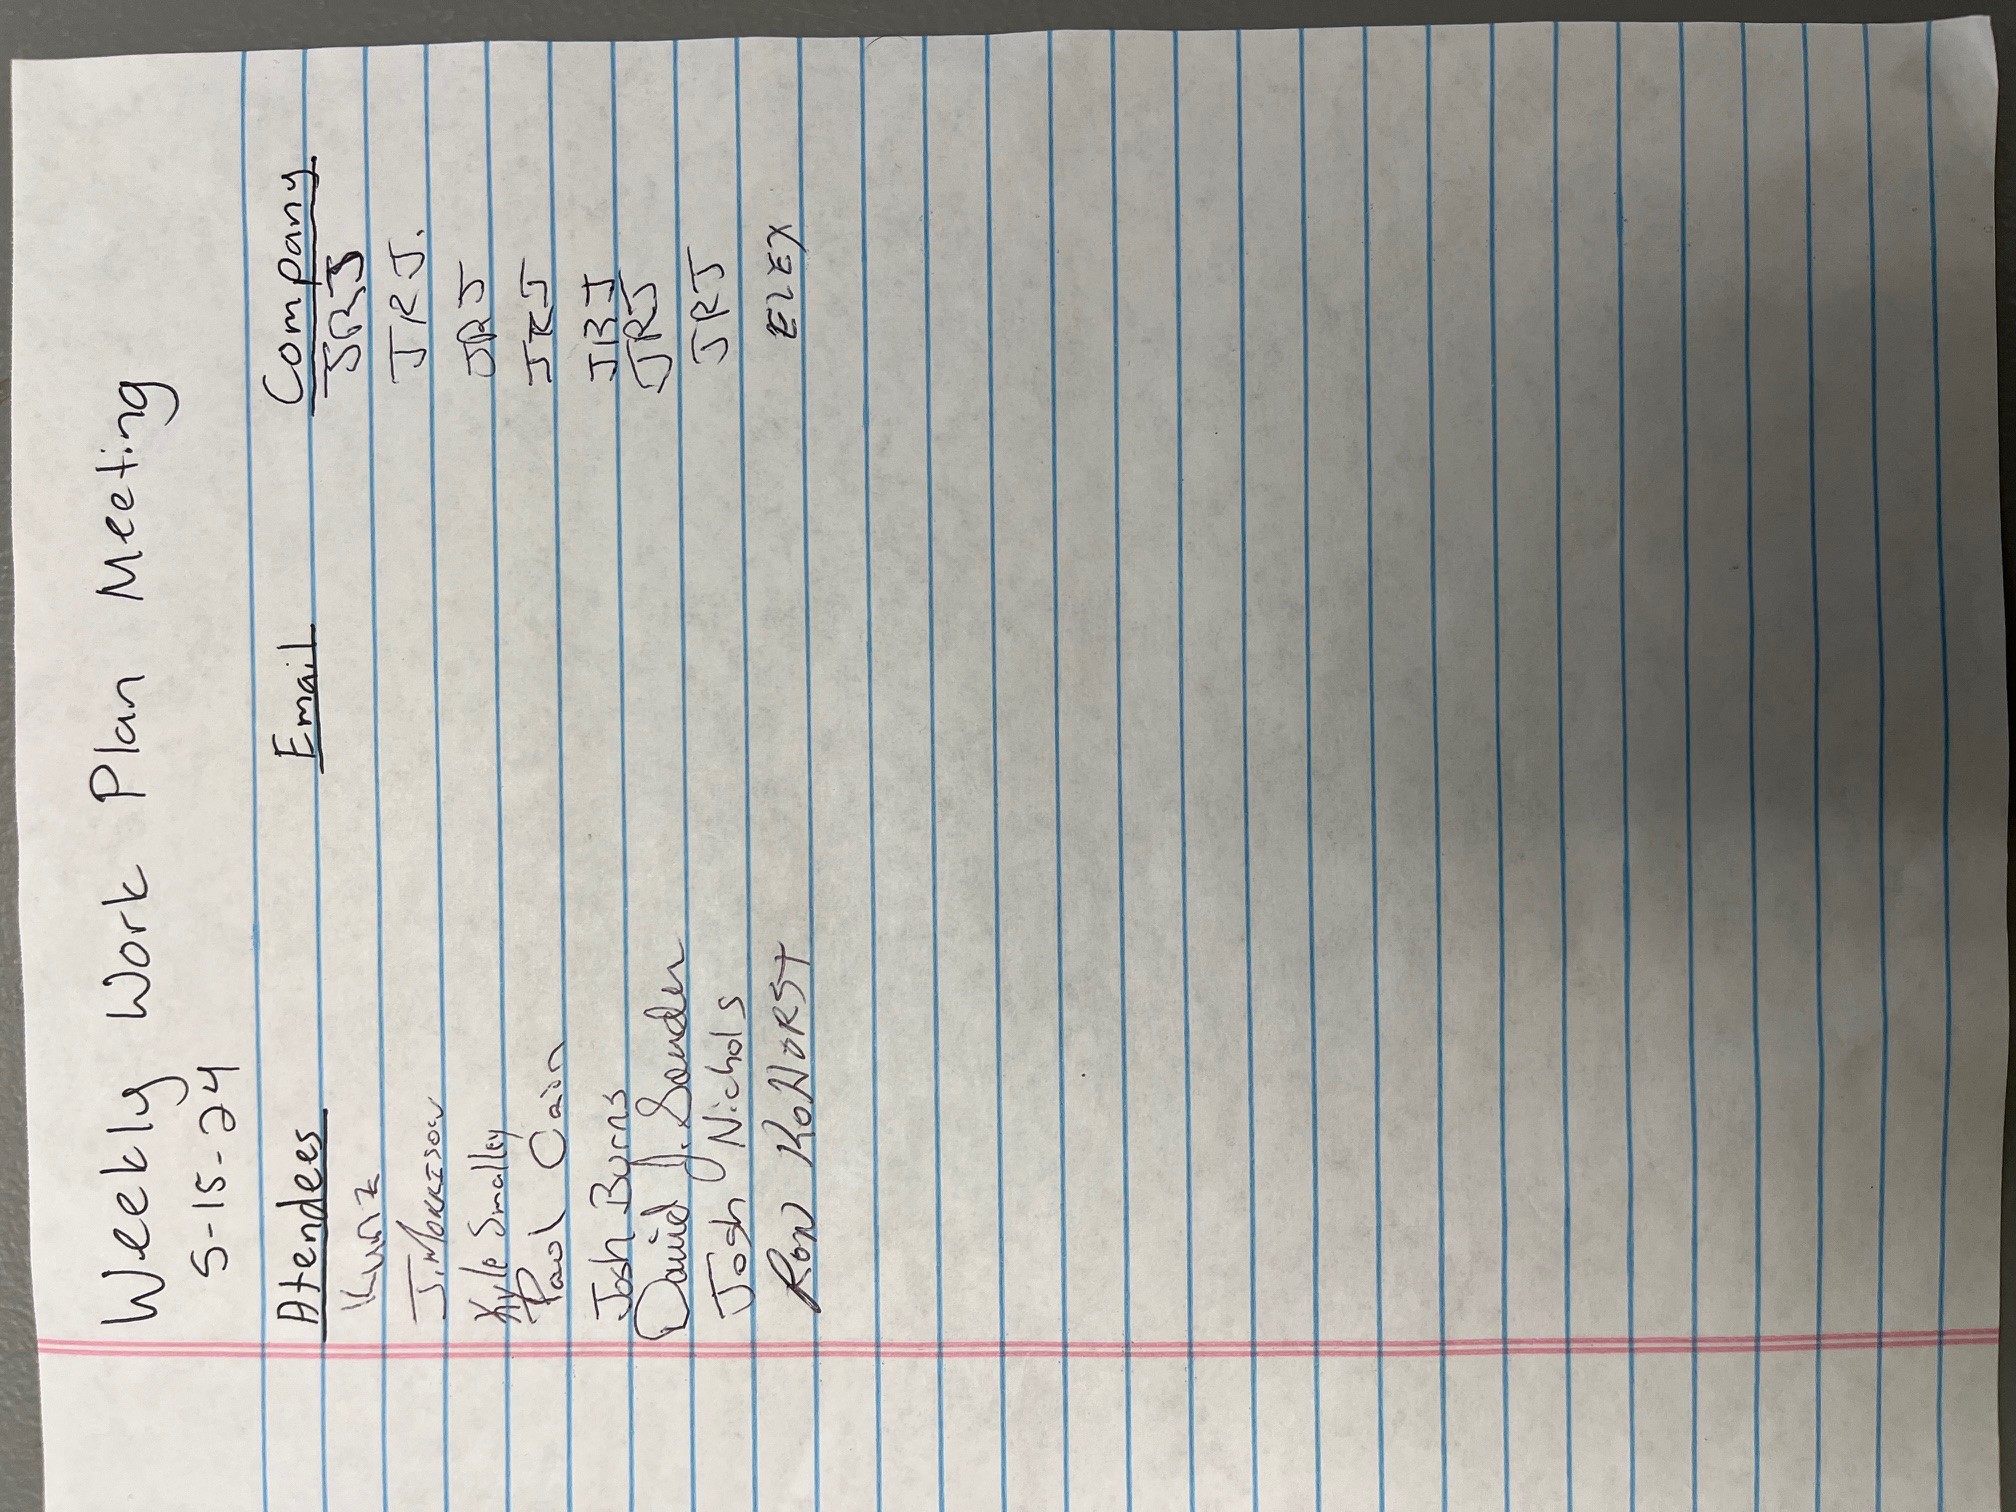 Weekly Work Plan Meeting
5-15-24
Atendees Email Company
Kunz JRJ
J. Morrison JRJ.
Kyle Smalley JRJ
Paul Cain JRJ
Josh Burns JRJ
David J. Souder JRJ
Josh Nichols JRJ
Ron Kohorst ELEX